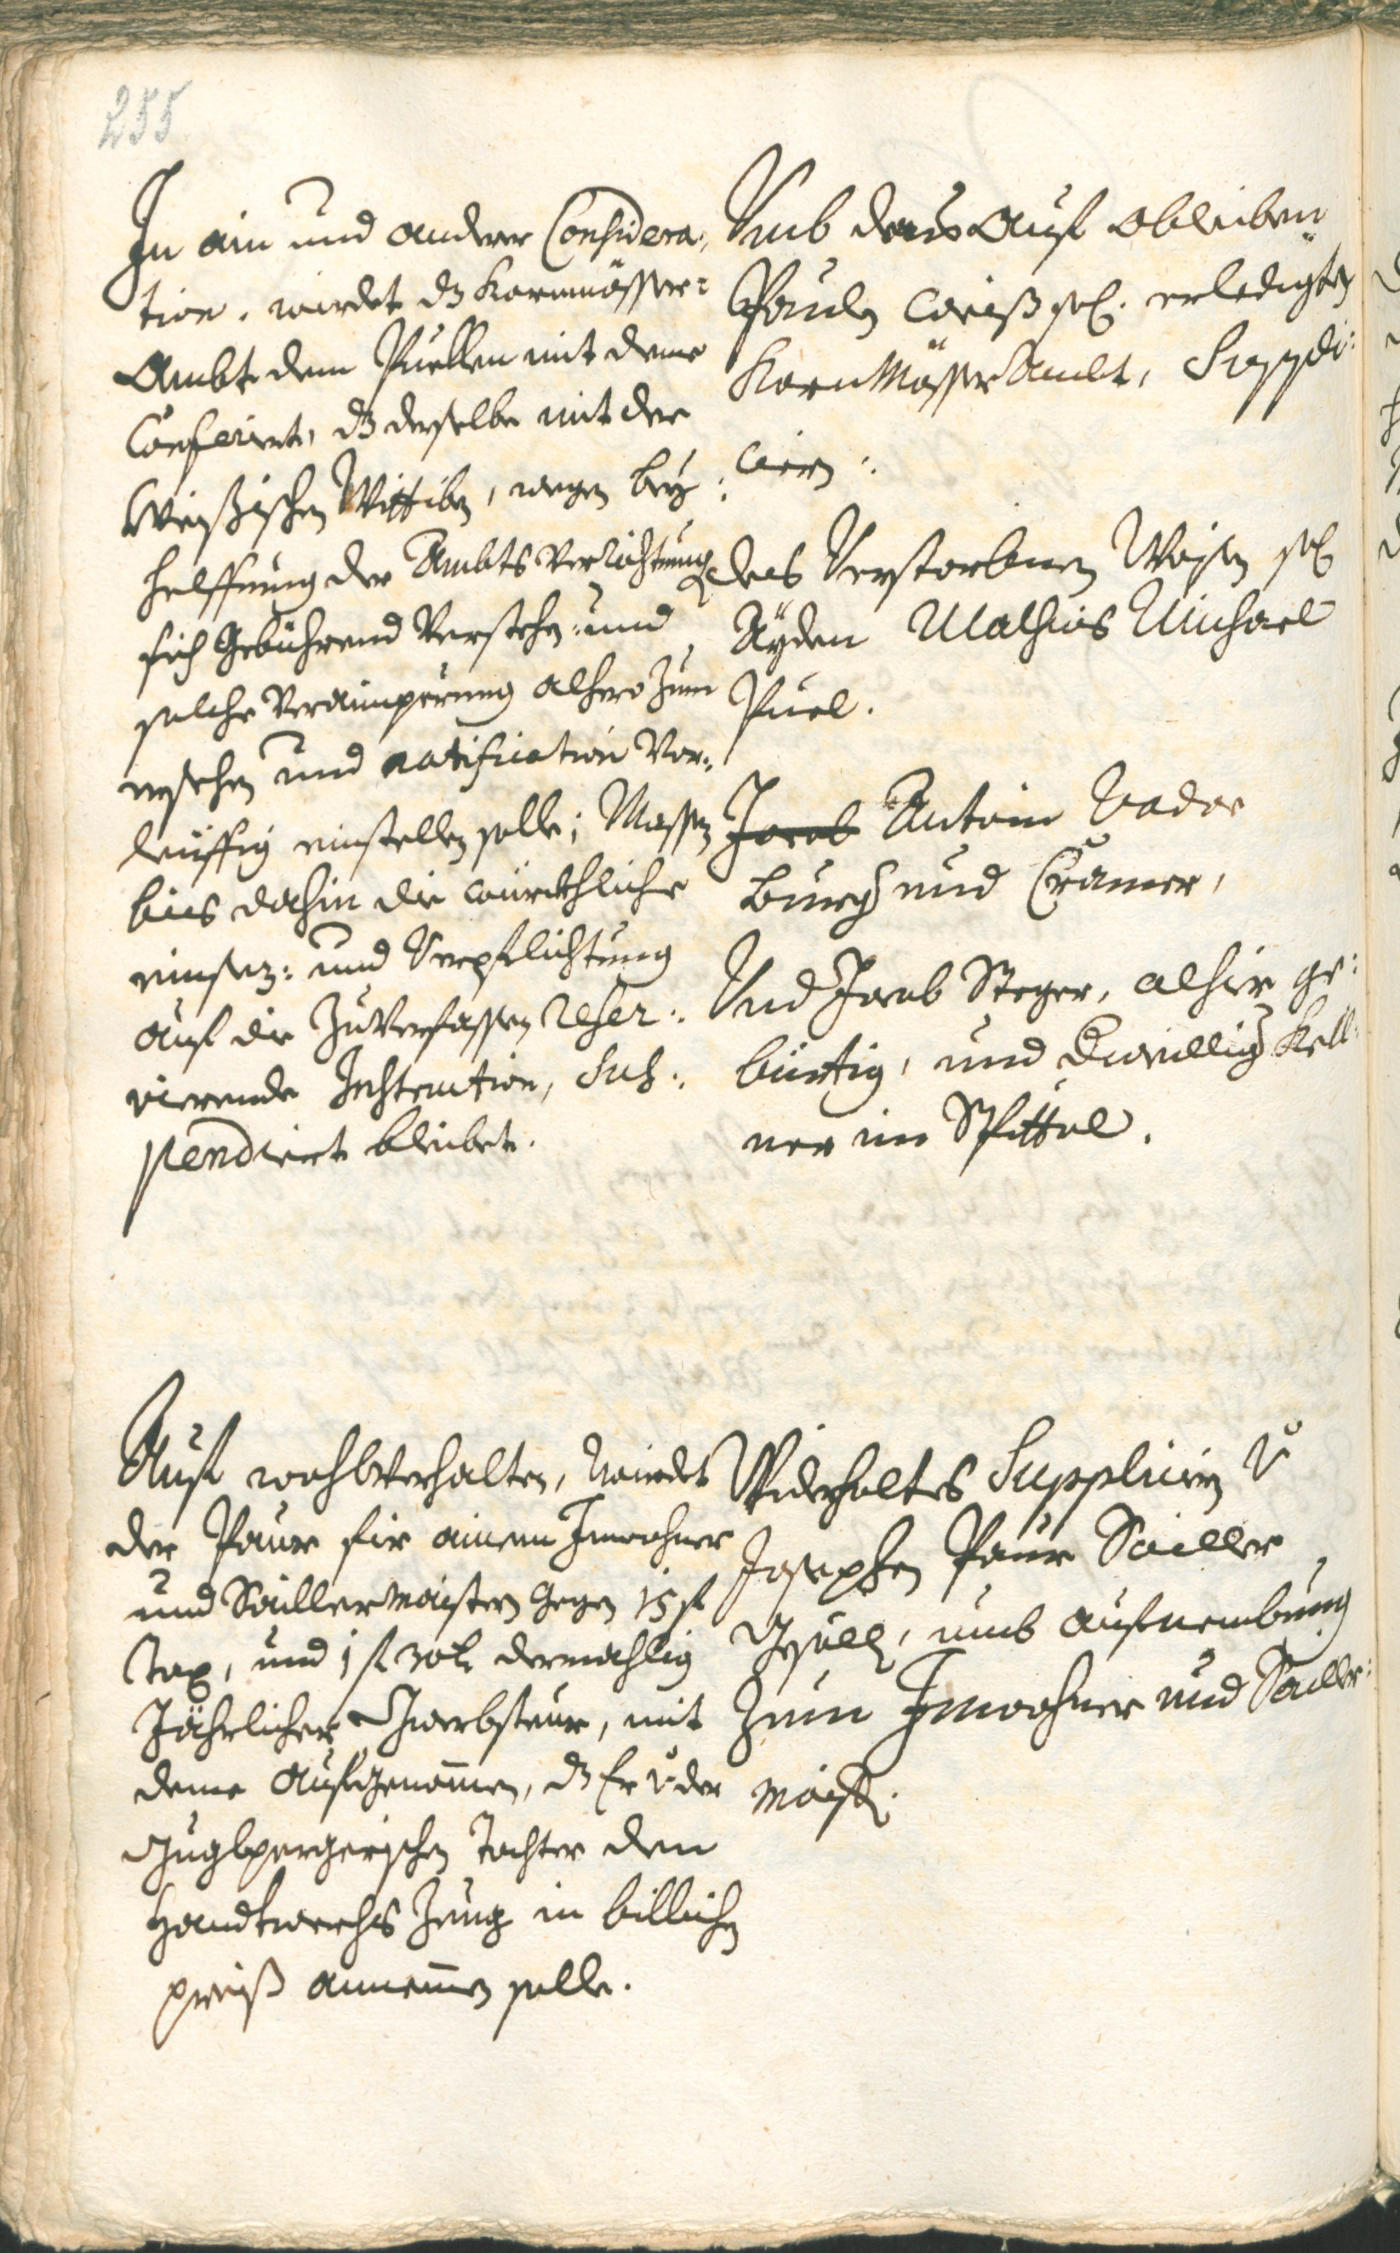 255
In ain und anderer Considera,
tion, wirdet dz Kornmösser=
Ambt dem Puellen mit deme
Conferiert, dz derselbe mit der
Weissischen Wittiben, wegen bey:
helffung der Ambts Verrichtung
sich Gebührend Verstehe: und
solche Verainigung alhero zum
ersehen und ratification Vor:
leuffig einstellen solle; Massen
biss dahin die würckhliche
einsez: und Verpflichtung
auf die zuverfassen reser:
vierende Instruction, Sus:
pendiert bleibet.
Umb das auf ableiben
Paulen Weiß sel. erledigte
Korn Mösser Ambt, Suppli:
cirn:
des Verstorbnen Weisen sel
Ayden Mathias Michael
Puel.
Jacob Antoin Vador
burg und Cramer,
Und Jacob Steger, alhier ge:
bürtig, und Kell:
ner im Spittal.
Auf wohlverhalten, wirdet
der Paur für ainem Inwohner
und Saillermaistern gegen 15 fl
Tax, und 1 fl 30 k dermahlig
Jährlicher Gwerbsteur, mit
deme aufgenommen, dz Er v. der
Guglpergerischen Tochter den
Handtwerchs Zeug in billichen
preiß annemmen solle.
Widerholtes Suppliciern v
Josephen Paur Sailler
Gesell, umb aufnembung
zum Inwohner und Sailler:
maister.